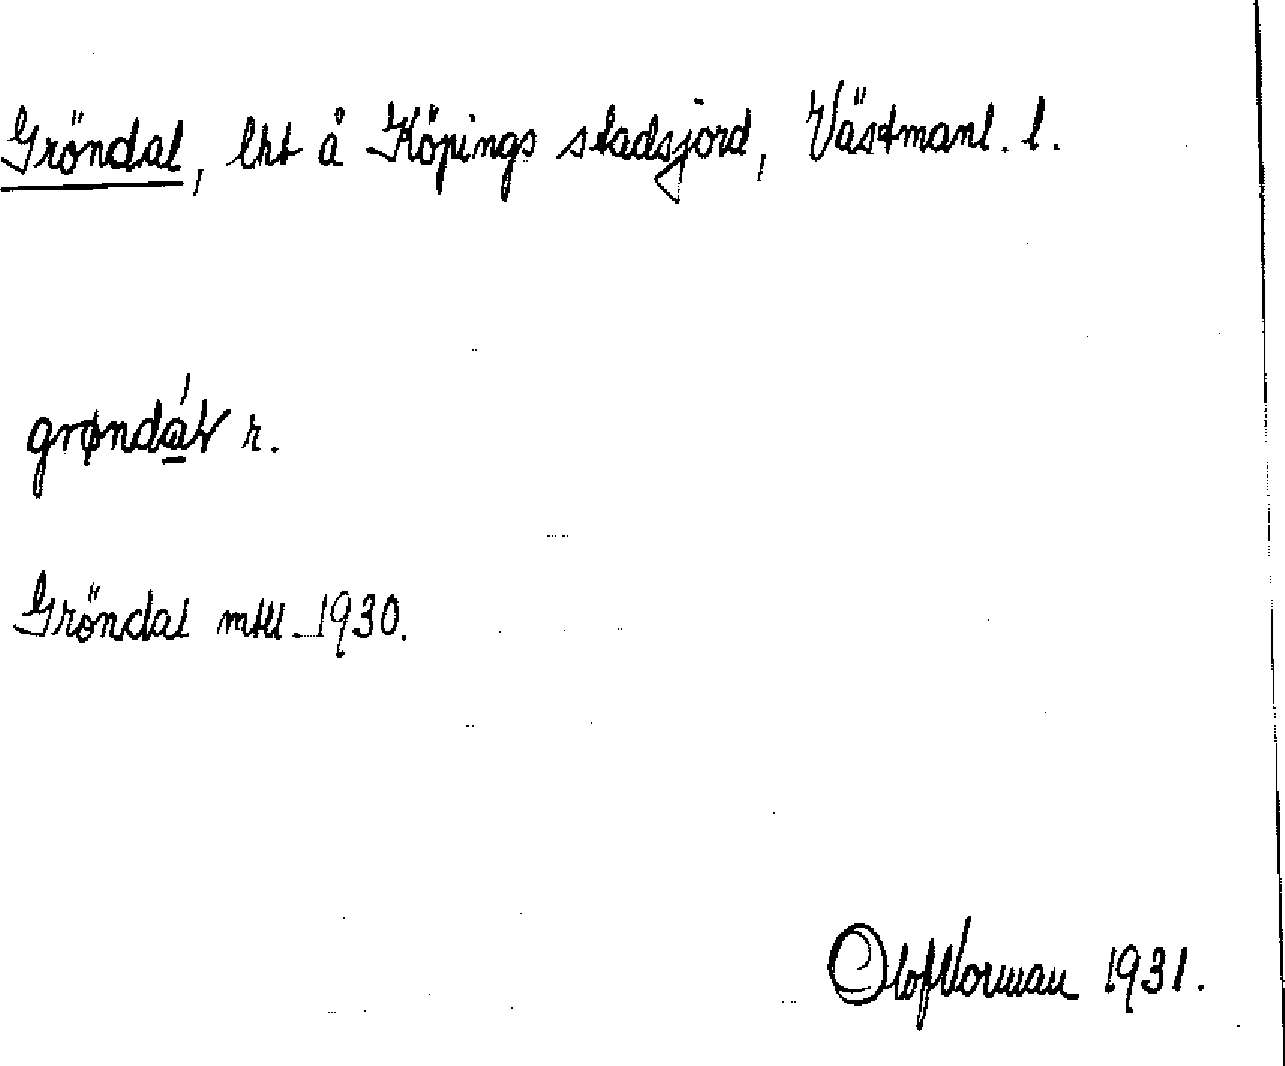 Gröndal, lht å Köpings stadsjord, Västmanl. l.
grøndá̱l r.
Gröndal mtll 1930.
Olof Norman 1931.